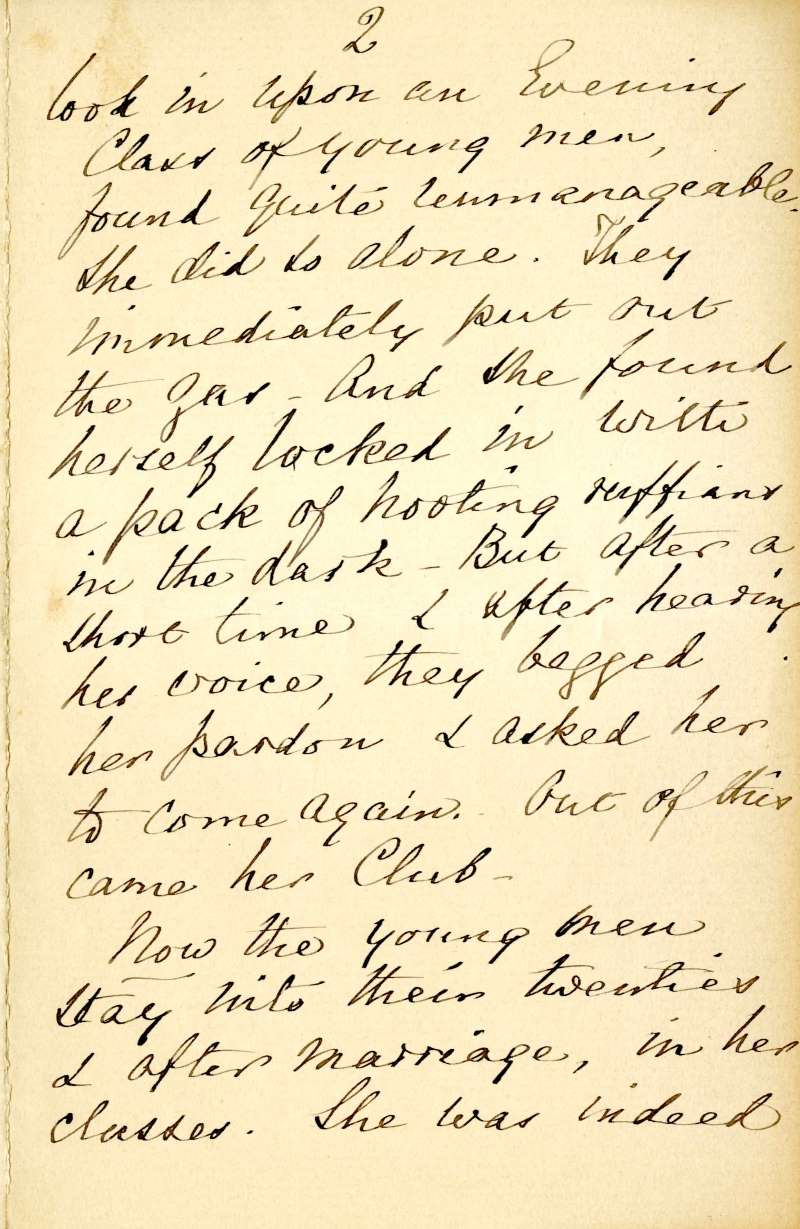 2
look in upon an Evening
Class of young men,
found quite unmanageable.
She did so alone. They
immediately put out
the gas - And she found
herself locked in with
a pack of hooting ruffians
in the dark - But after a
short time & after hearing
her voice, they begged
her pardon & asked her
to come again. Out of this
came her Club -
Now the young men
stay into their twenties
& after marriage, in her
classes. She was indeed